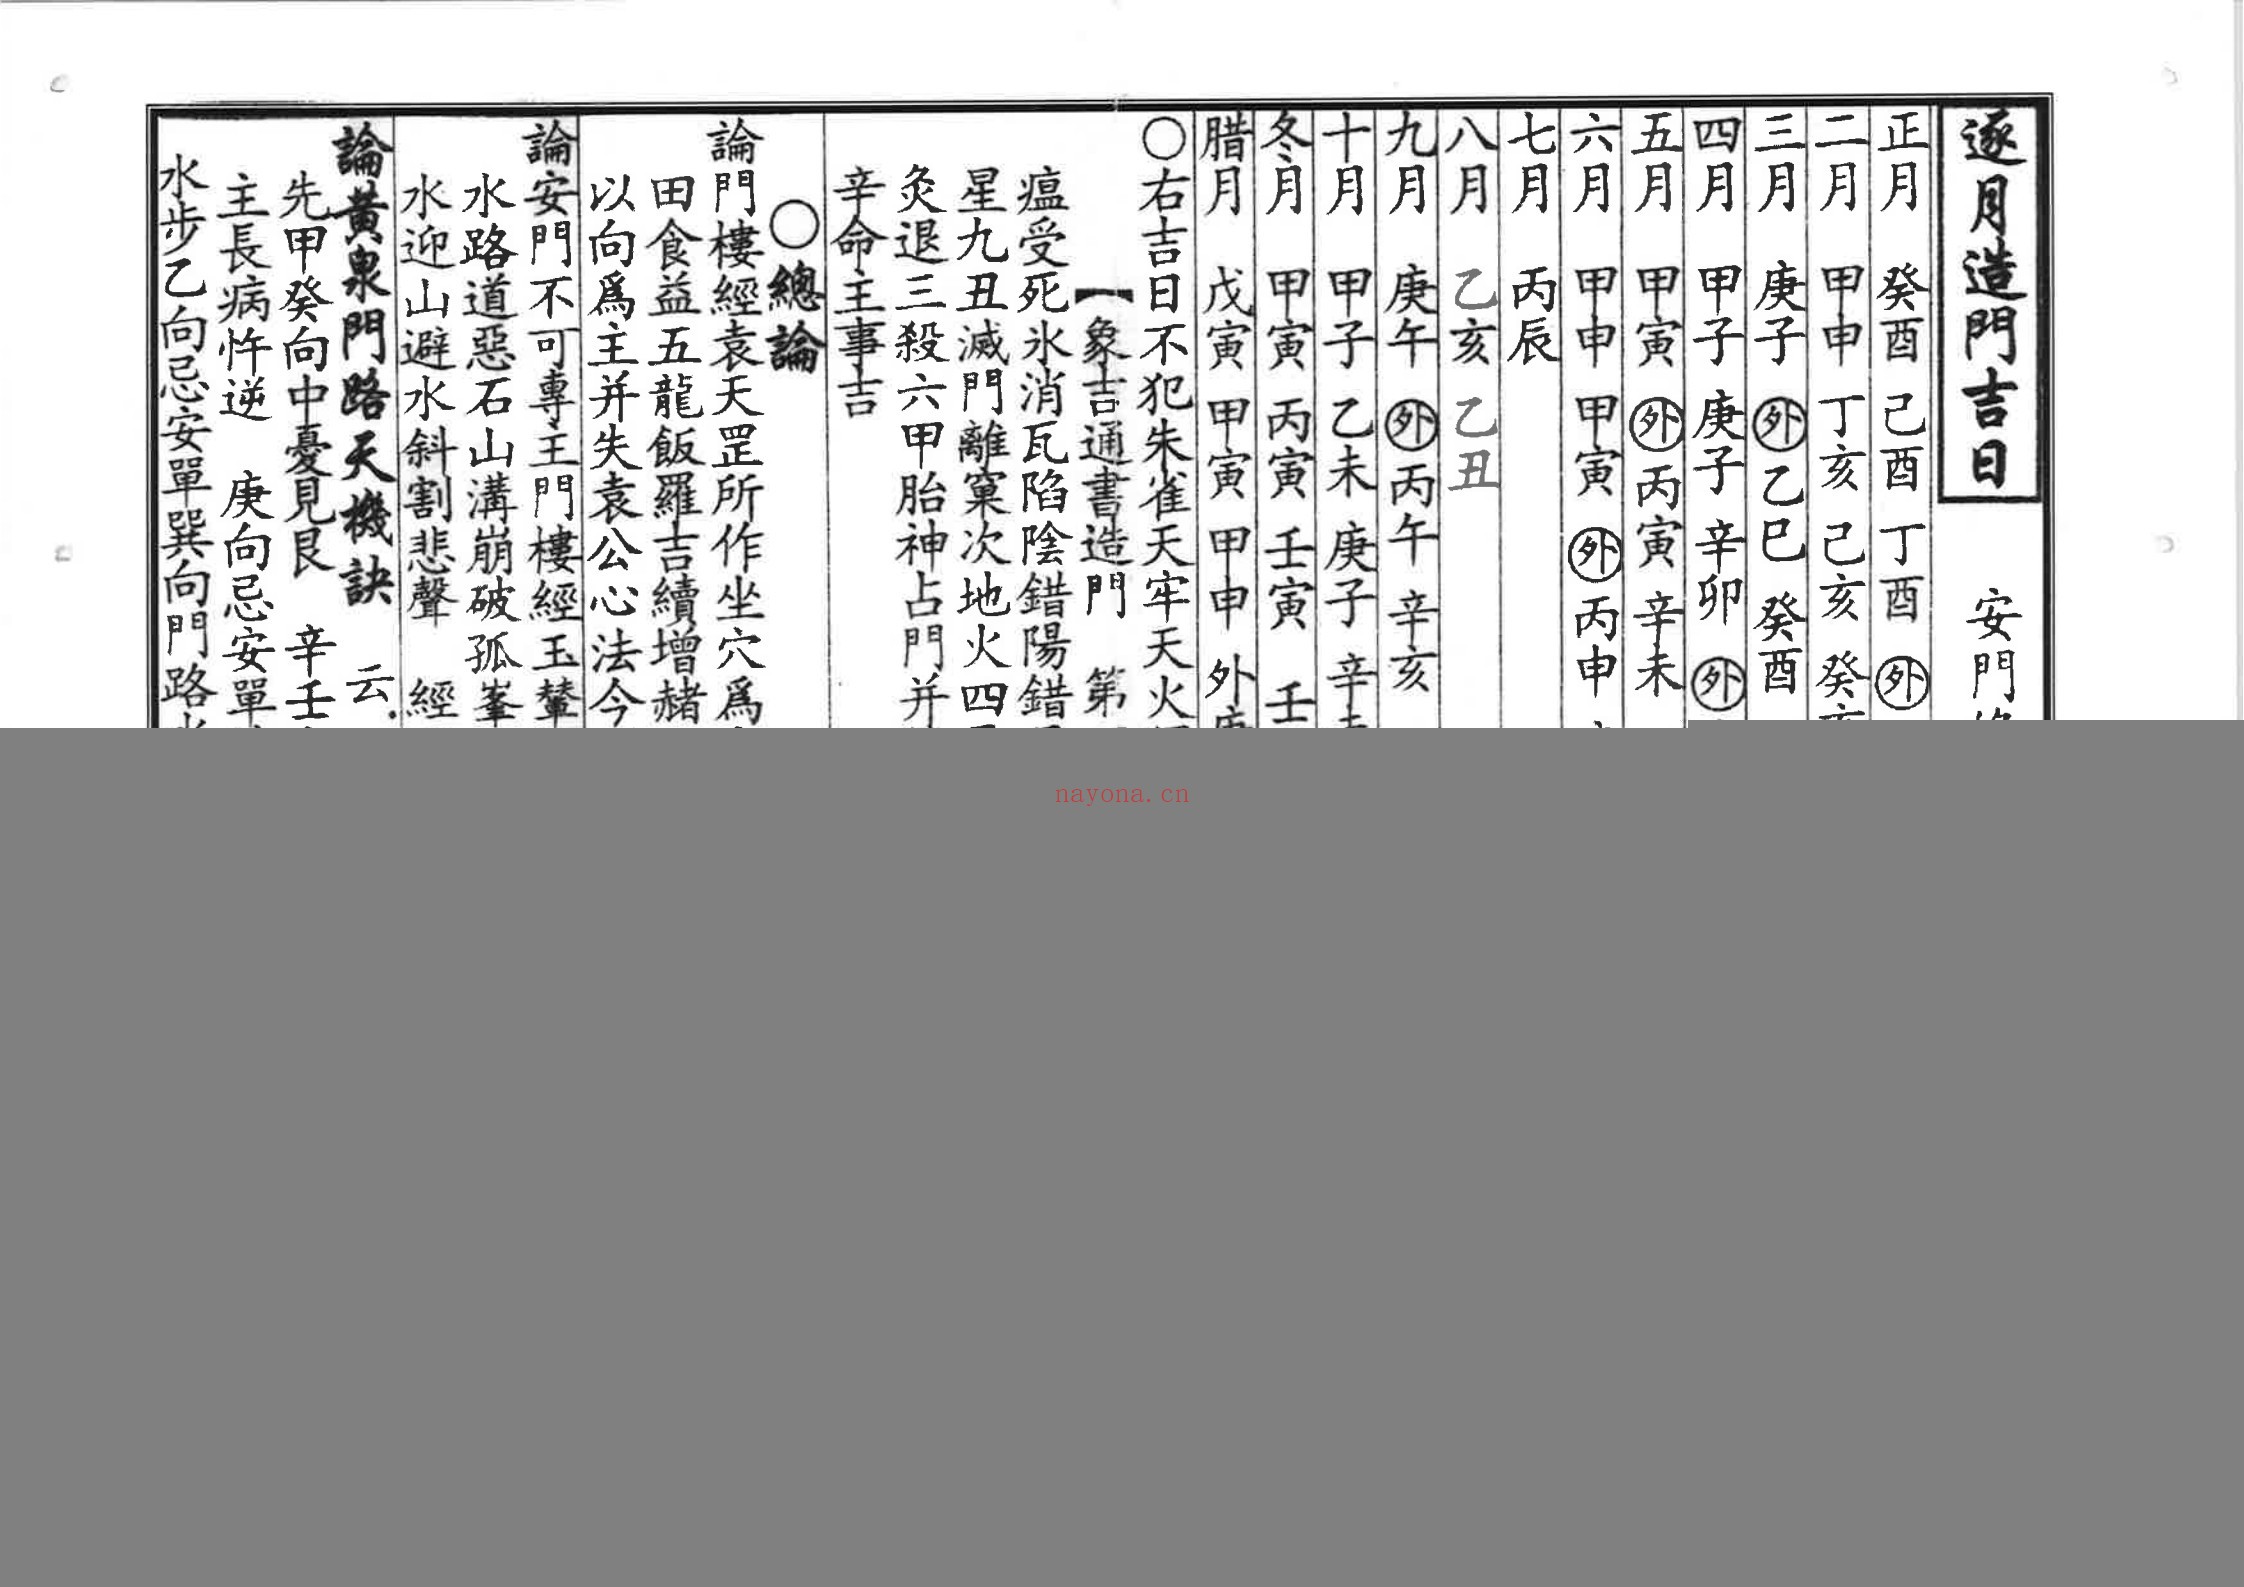 逐月造門吉日　安門
正月　癸酉　己酉　丁酉　外
二月　甲申　丁亥　己亥　癸亥
三月　庚子　外　乙巳　癸酉
四月　甲子　庚子　辛卯　外
五月　甲寅　外　丙寅　辛未
六月　甲申　甲寅　外　丙申
七月　丙辰
八月　乙亥　乙丑
九月　庚午　外　丙午　辛亥
十月　甲子　乙未　庚子　辛
冬月　甲寅　丙寅　壬寅　壬
腊月　戊寅　甲寅　甲申　外
〇右吉日不犯朱雀天牢天火
【象吉通書造門　第
瘟受死氷消瓦陷陰錯陽錯
星九丑滅門離窠次地火四
灸退三殺六甲胎神占門并
辛命主事吉
〇總論
論門樓經袁天罡所作坐穴爲
田食益五龍飯羅吉續增赭
以向爲主并失袁公心法今
論安門不可專主門樓經玉輦
水路道惡石山溝崩破孤峯
水迎山避水斜割悲聲　經
論黃泉門路天機訣　云
先甲癸向中憂見艮　辛壬
主長病忤逆　庚向忌安單
水步乙向忌安單巽向門路
nayona.cn